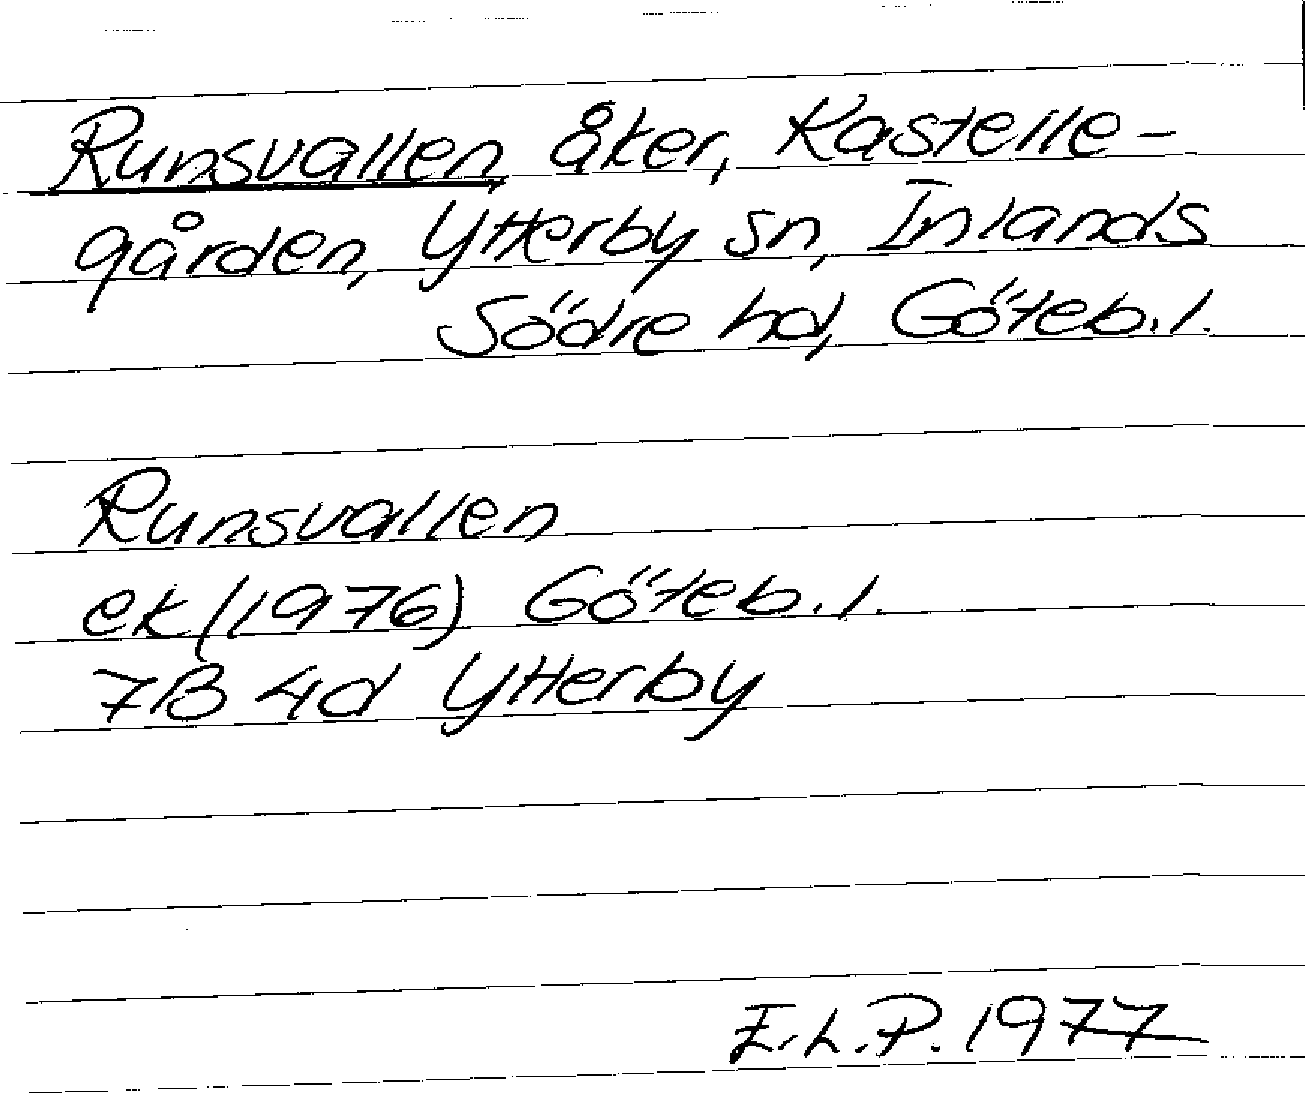 Runsvallen åker, Kastelle-
gården, Ytterby sn, Inlands
Södre hd, Göteb.l.
Runsvallen
ek (1976) Göteb.l.
7B 4d Ytterby
E.L.P. 1977